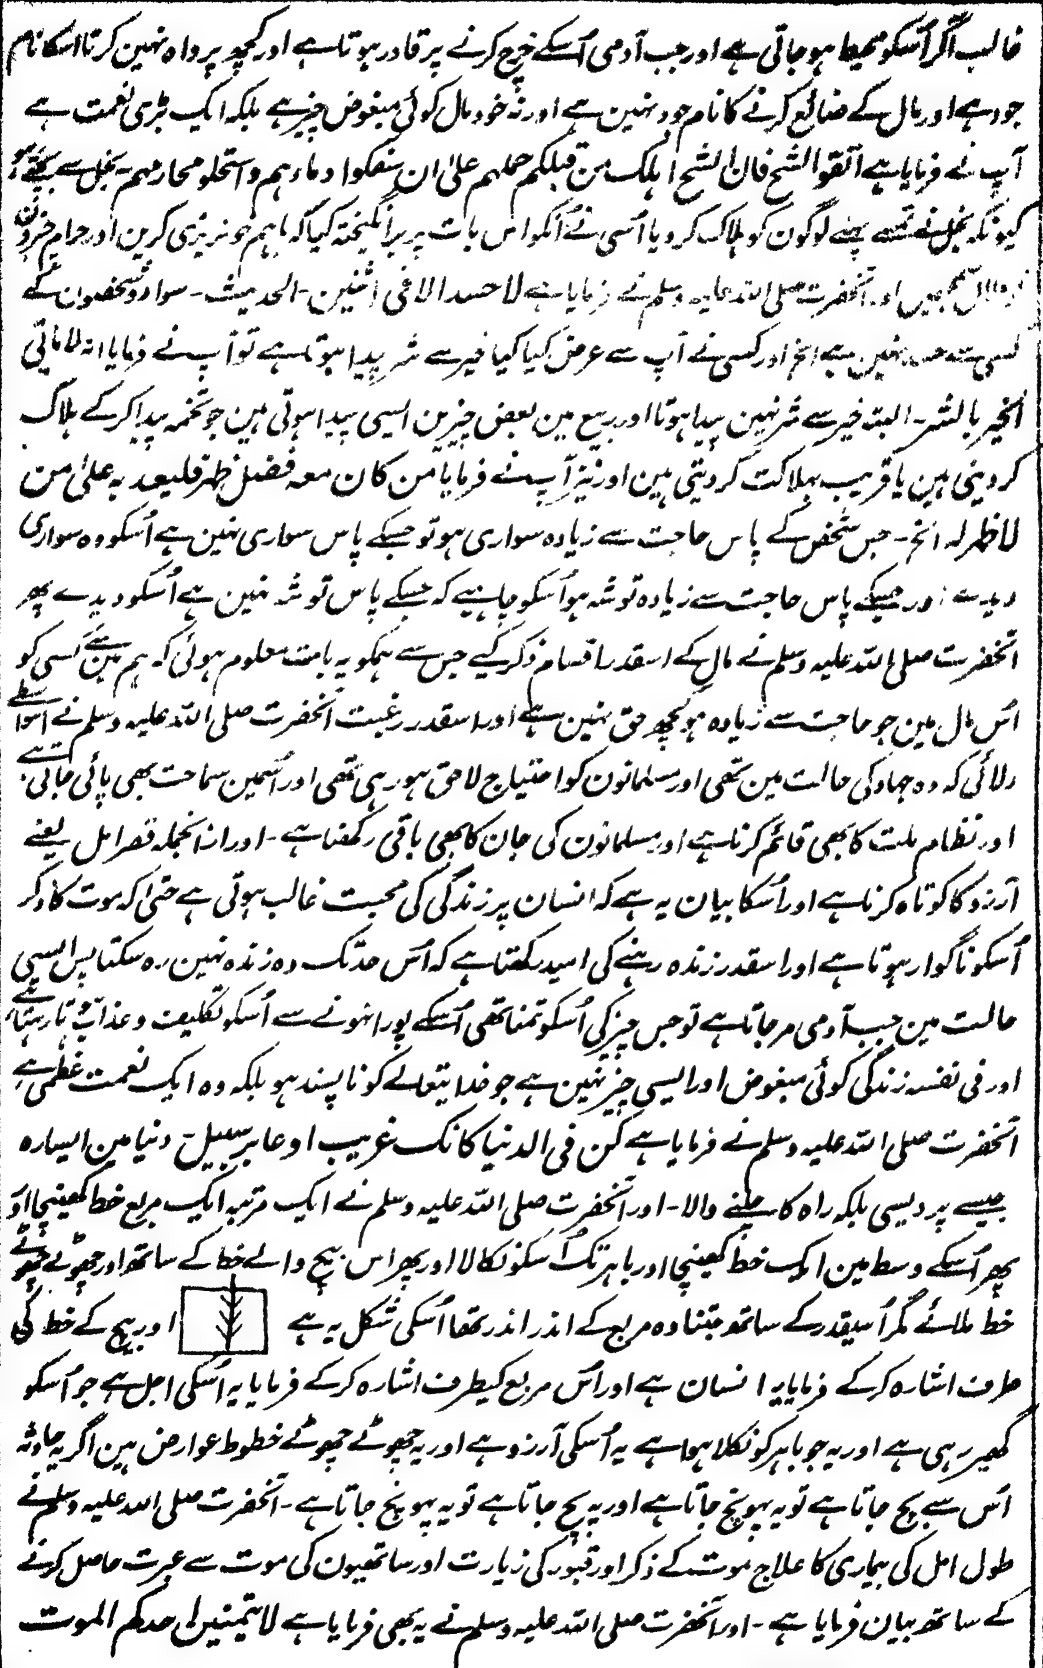 غالب اگر اُسکو محیط ہو جاتی ہے اور جب آدمی اُسکے خرچ کرنے پر قادر ہوتا ہے اور کچھ پرواہ نہین کرتا اسکا نام
جود ہے اور مال کے ضائع کرنے کا نام جود نہین ہے اور نہ خود مال کوئی مبغوض چیز ہے بلکہ ایک بڑی نعمت ہے
آپ نے فرمایا ہے اتقوا الشح فان الشح اہلک من قبلکم حملہم علیٰ ان سفکوا دماءہم واستحلوا محارمہم۔ بخل سے بچتے رہو
کیونکہ بخل نے تمسے پہلے لوگون کو ہلاک کردیا اُسی نے اُنکو اس بات پر برانگیختہ کیا کہ باہم خونریزی کرین اور حرام چیزون
کو حلال سمجھین اور آنحضرت صلی اللہ علیہ وسلم نے فرمایا ہے لا حسد الا فی اثنین۔ الحدیث۔ سوا دو شخصون کے
کسی سے حسد نہین ہے الخ اور کسی نے آپ سے عرض کیا کیا خیر سے شر پیدا ہوتا ہے تو آپ نے فرمایا انہ لا یاتی
الخیر بالشر۔ البتہ خیر سے شر نہین پیدا ہوتا اور ربیع مین بعض چیزین ایسی پیدا ہوتی ہین جو تخمہ پیدا کرکے ہلاک
کردیتی ہین یا قریب بہلاکت کردیتی ہین اور نیز آپ نے فرمایا من کان معہ فضل ظہر فلیعد بہ علیٰ من
لا ظہر لہ الخ۔ جس شخص کے پاس حاجت سے زیادہ سواری ہو تو جسکے پاس سواری نہین ہے اُسکو وہ سواری
دیدے اور جسکے پاس حاجت سے زیادہ توشہ ہو اُسکو چاہیے کہ جسکے پاس توشہ نہین ہے اُسکو دیدے پھر
آنحضرت صلی اللہ علیہ وسلم نے مال کے اسقدر اقسام ذکر کیے جس سے ہمکو یہ بات معلوم ہوئی کہ ہم مین سے کسی کو
اُس مال مین جو حاجت سے زیادہ ہو کچھ حق نہین ہے اور اسقدر رغبت آنحضرت صلی اللہ علیہ وسلم نے اسواسطے
دلائی کہ وہ جہاد کی حالت مین تھی اور مسلمانون کو احتیاج لاحق ہو رہی تھی اور اُسمین سماحت بھی پائی جاتی ہے
اور نظام ملت کا بھی قائم کرنا ہے اور مسلمانون کی جان کا بھی باقی رکھنا ہے۔ اور ازانجملہ قصر امل یعنے
آرزو کا کوتاہ کرنا ہے اور اُسکا بیان یہ ہے کہ انسان پر زندگی کی محبت غالب ہوتی ہے حتیٰ کہ موت کا ذکر
اُسکو ناگوار ہوتا ہے اور اسقدر زندہ رہنے کی امید رکھتا ہے کہ اُس حد تک وہ زندہ نہین رہ سکتا پس ایسی
حالت مین جب آدمی مر جاتا ہے تو جس چیز کی اُسکو تمنا تھی اُسکے پورا نہونے سے اُسکو تکلیف و عذاب ہوتا رہتا ہے
اور فی نفسہ زندگی کوئی مبغوض اور ایسی چیز نہین ہے جو خدا یتعالے کو ناپسند ہو بلکہ وہ ایک نعمت عظمیٰ ہے
آنحضرت صلی اللہ علیہ وسلم نے فرمایا ہے کن فی الدنیا کانک غریب او عابر سبیل۔ دنیا مین ایسا رہ
جیسے پردیسی بلکہ راہ کا چلنے والا۔ اور آنحضرت صلی اللہ علیہ وسلم نے ایک مرتبہ ایک مربع خط کھینچا اور
پھر اُسکے وسط مین ایک خط کھینچا اور باہر تک اُسکو نکالا اور پھر اس بیچ والے خط کے ساتھ اور چھوٹے چھوٹے
خط ملائے مگر اُسیقدر کے ساتھ جتنا وہ مربع کے اندر اندر تھا اُسکی شکل یہ ہے اور بیچ کے خط کی
طرف اشارہ کرکے فرمایا یہ انسان ہے اور اُس مربع کیطرف اشارہ کرکے فرمایا یہ اُسکی اجل ہے جو اُسکو
گھیر رہی ہے اور یہ جو باہر کو نکلا ہوا ہے یہ اُسکی آرزو ہے اور یہ چھوٹے چھوٹے خطوط عوارض ہین اگر یہ حادثہ
اُس سے بچ جاتا ہے تو یہ پہونچ جاتا ہے اور یہ بچ جاتا ہے تو یہ پہونچ جاتا ہے۔ آنحضرت صلی اللہ علیہ وسلم نے
طول امل کی بیماری کا علاج موت کے ذکر اور قبور کی زیارت اور ساتھیون کی موت سے عبرت حاصل کرنے
کے ساتھ بیان فرمایا ہے۔ اور آنحضرت صلی اللہ علیہ وسلم نے یہ بھی فرمایا ہے لا یتمنین احدکم الموت